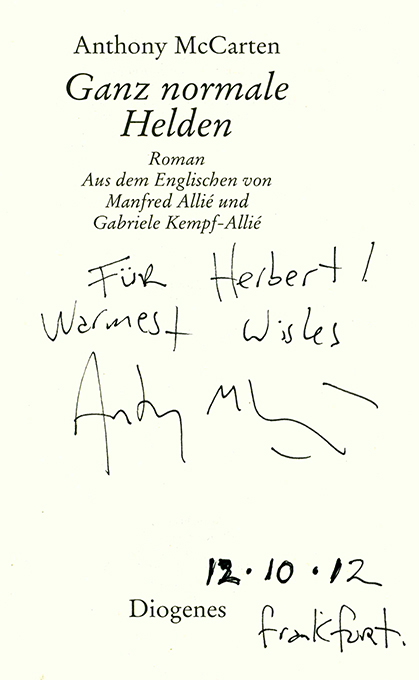 Anthony McCarten
Ganz normale
Helden
Roman
Aus dem Englischen von
Manfred Allié und
Gabriele Kempf-Allié
FÜR Herbert!
Warmest Wishes
12.10.12
Diogenes
Frankfurt.